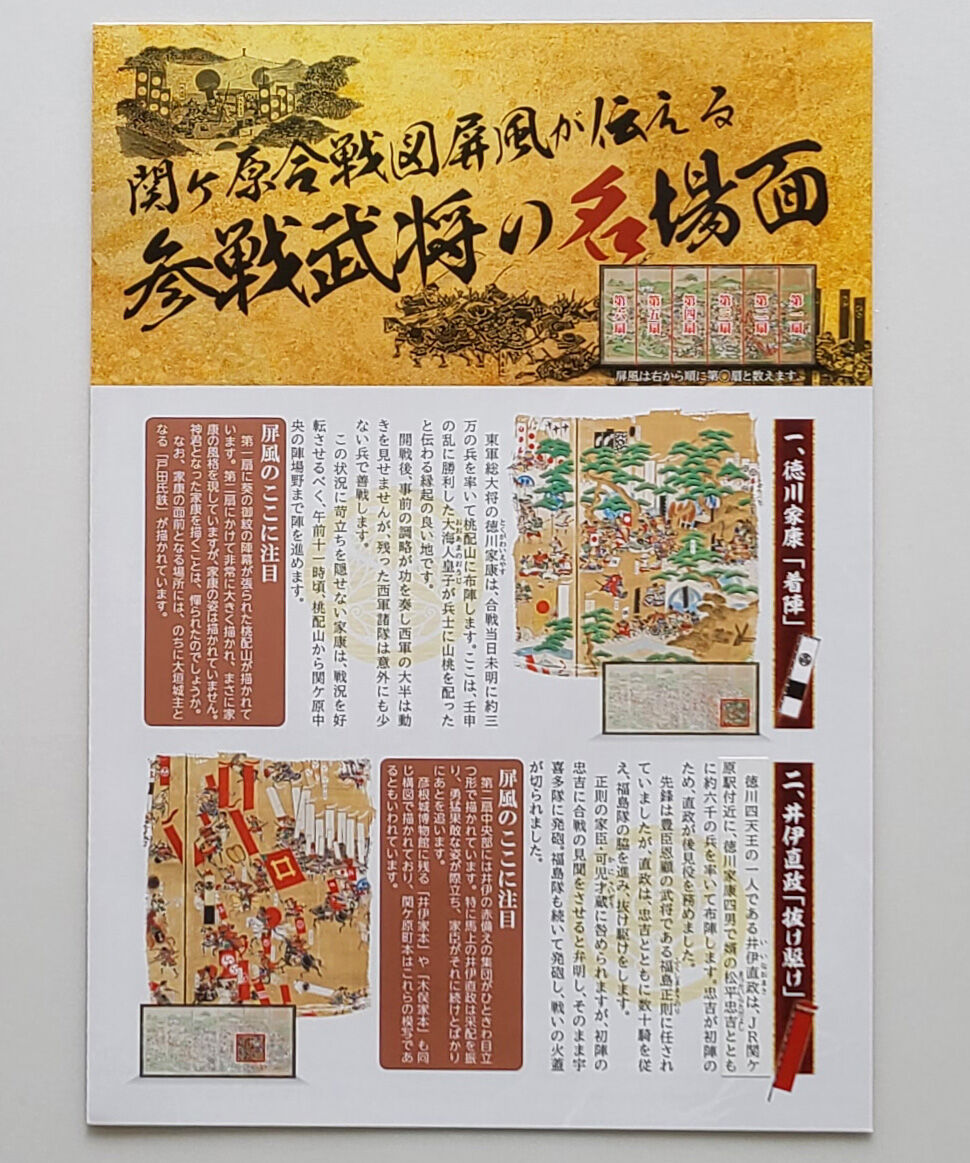 関ケ原合戦図屏風が伝える
参戦武将の名場面
第一扇
第二扇
第三扇
第四扇
第五扇
第六扇
屏風は右から順に第○扇と数えます。
一、徳川家康「着陣」
東軍総大将の徳川家康は、合戦当日未明に約三
万の兵を率いて桃配山に布陣します。ここは、壬申
の乱に勝利した大海人皇子が兵士に山桃を配った
と伝わる縁起の良い地です。
開戦後、事前の調略が功を奏し西軍の大半は動
きを見せませんが、残った西軍諸隊は意外にも少
ない兵で善戦します。
この状況に苛立ちを隠せない家康は、戦況を好
転させるべく、午前十一時頃、桃配山から関ケ原中
央の陣場野まで陣を進めます。
屏風のここに注目
第一扇に葵の御紋の陣幕が張られた桃配山が描かれて
います。第二扇にかけて非常に大きく描かれ、まさに家
康の風格を現していますが、家康の姿は描かれていません。
神君となった家康を描くことは、憚られたのでしょうか。
なお、家康の面前となる場所には、のちに大垣城主と
なる「戸田氏鉄」が描かれています。
二、井伊直政「抜け駆け」
徳川四天王の一人である井伊直政は、JR関ケ
原駅付近に、徳川家康四男で婿の松平忠吉ととも
に約六千の兵を率いて布陣します。忠吉が初陣の
ため、直政が後見役を務めました。
先鋒は豊臣恩顧の武将である福島正則に任され
ていましたが、直政は、忠吉とともに数十騎を従
え、福島隊の脇を進み、抜け駆けをします。
正則の家臣・可児才蔵に咎められますが、初陣の
忠吉に合戦の見聞をさせると弁明し、そのまま宇
喜多隊に発砲。福島隊も続いて発砲し、戦いの火蓋
が切られました。
屏風のここに注目
第二扇中央部には井伊の赤備えの集団がひときわ目立
つ形で描かれています。特に馬上の井伊直政は采配を振
り、勇猛果敢な姿が際立ち、家臣がそれに続けとばかり
にあとを追います。
彦根城博物館に残る「井伊家本」や「木俣家本」も同
じ構図で描かれており、関ケ原町本はこれらの模写であ
るともいわれています。